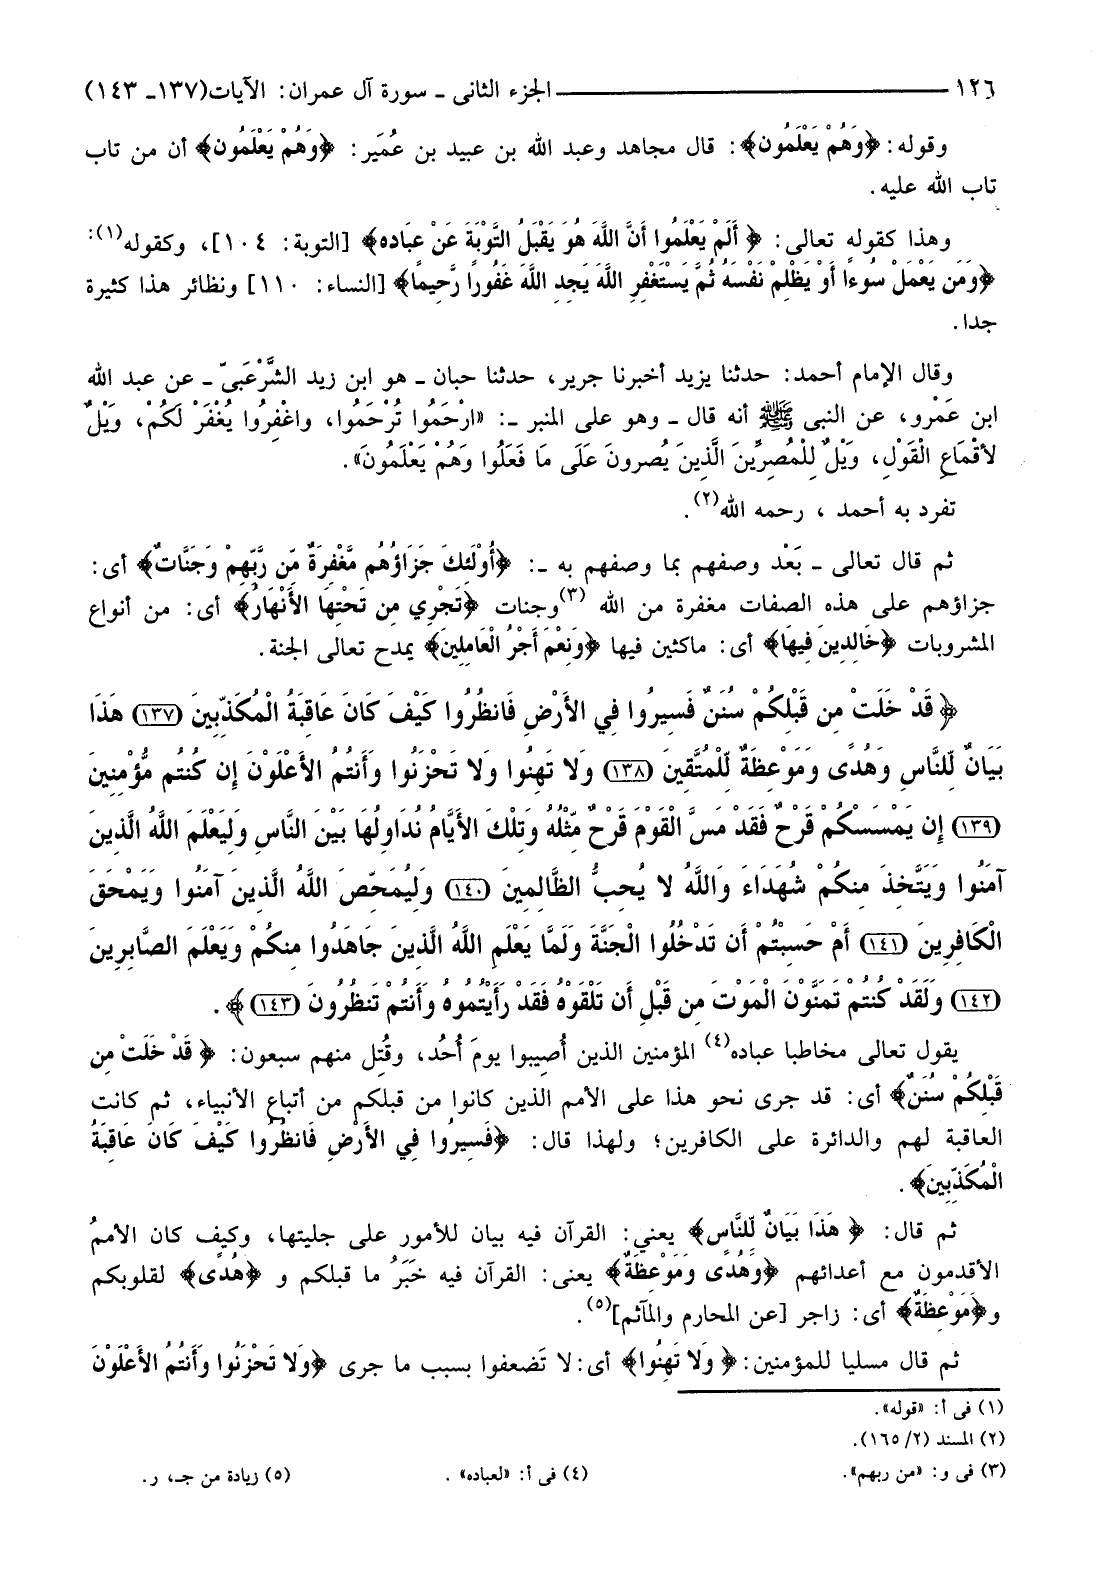 ١٢٦ ــــــــــــــــــــ الجزء الثانى ـ سورة آل عمران: الآيات(١٣٧ـ ١٤٣)
وقوله: ﴿وَهُمْ يَعْلَمُون﴾: قال مجاهد وعبد الله بن عبيد بن عُمَير: ﴿وَهُمْ يَعْلَمُون﴾ أن من تاب
تاب الله عليه.
وهذا كقوله تعالى: ﴿ أَلَمْ يَعْلَمُوا أَنَّ اللَّهَ هُوَ يَقْبَلُ التَّوْبَةَ عَنْ عِبَاده﴾ [التوبة: ١٠٤]، وكقوله(١):
﴿وَمَن يَعْمَلْ سُوءًا أَوْ يَظْلِمْ نَفْسَهُ ثُمَّ يَسْتَغْفِرِ اللَّهَ يَجِدِ اللَّهَ غَفُورًا رَّحِيمًا﴾ [النساء: ١١٠] ونظائر هذا كثيرة
جدا.
وقال الإمام أحمد: حدثنا يزيد أخبرنا جرير، حدثنا حبان ـ هو ابن زيد الشَّرْعَبيّ ـ عن عبد الله
ابن عَمْرو، عن النبى ﷺ أنه قال ـ وهو على المنبر ـ: «ارْحَمُوا تُرْحَمُوا، واغْفِرُوا يُغْفَرْ لَكُمْ، وَيْلٌ
لأقْمَاعِ الْقَوْلِ، وَيْلٌ لِلْمُصِرِّينَ الَّذِينَ يُصرونَ عَلَى مَا فَعَلُوا وَهُمْ يَعْلَمُونَ».
تفرد به أحمد ، رحمه الله(٢).
ثم قال تعالى ـ بَعْد وصفهم بما وصفهم به ـ: ﴿أُوْلَئِكَ جَزَاؤُهُم مَّغْفِرَةٌ مِّن رَّبِّهِمْ وَجَنَّاتٌ﴾ أى:
جزاؤهم على هذه الصفات مغفرة من الله (٣)وجنات ﴿تَجْرِي مِن تَحْتِهَا الأَنْهَارُ﴾ أى: من أنواع
المشروبات ﴿خَالِدِينَ فِيهَا﴾ أى: ماكثين فيها ﴿وَنِعْمَ أَجْرُ الْعَامِلِينَ﴾ يمدح تعالى الجنة.
﴿ قَدْ خَلَتْ مِن قَبْلِكُمْ سُنَنٌ فَسِيرُوا فِي الأَرْضِ فَانظُرُوا كَيْفَ كَانَ عَاقِبَةُ الْمُكَذِّبِينَ (١٣٧) هَذَا
بَيَانٌ لِّلنَّاسِ وَهُدًى وَمَوْعِظَةٌ لِّلْمُتَّقِينَ (١٣٨) وَلا تَهِنُوا وَلا تَحْزَنُوا وَأَنتُمُ الأَعْلَوْنَ إِن كُنتُم مُّؤْمِنِينَ
(١٣٩) إِن يَمْسَسْكُمْ قَرْحٌ فَقَدْ مَسَّ الْقَوْمَ قَرْحٌ مِّثْلُهُ وَتِلْكَ الأَيَّامُ نُدَاوِلُهَا بَيْنَ النَّاسِ وَلِيَعْلَمَ اللَّهُ الَّذِينَ
آمَنُوا وَيَتَّخِذَ مِنكُمْ شُهَدَاءَ وَاللَّهُ لا يُحِبُّ الظَّالِمِينَ (١٤٠) وَلِيُمَحِّصَ اللَّهُ الَّذِينَ آمَنُوا وَيَمْحَقَ
الْكَافِرِينَ (١٤١) أَمْ حَسِبْتُمْ أَن تَدْخُلُوا الْجَنَّةَ وَلَمَّا يَعْلَمِ اللَّهُ الَّذِينَ جَاهَدُوا مِنكُمْ وَيَعْلَمَ الصَّابِرِينَ
(١٤٢) وَلَقَدْ كُنتُمْ تَمَنَّوْنَ الْمَوْتَ مِن قَبْلِ أَن تَلْقَوْهُ فَقَدْ رَأَيْتُمُوهُ وَأَنتُمْ تَنظُرُونَ (١٤٣) ﴾.
يقول تعالى مخاطبا عباده(٤) المؤمنين الذين أُصيبوا يومَ أُحُد، وقُتِل منهم سبعون: ﴿ قَدْ خَلَتْ مِن
قَبْلِكُمْ سُنَنٌ﴾ أى: قد جرى نحو هذا على الأمم الذين كانوا من قبلكم من أتباع الأنبياء، ثم كانت
العاقبة لهم والدائرة على الكافرين؛ ولهذا قال: ﴿فَسِيرُوا فِي الأَرْضِ فَانظُرُوا كَيْفَ كَانَ عَاقِبَةُ
الْمُكَذِّبِينَ﴾.
ثم قال: ﴿ هَذَا بَيَانٌ لِّلنَّاسِ﴾ يعني: القرآن فيه بيان للأمور على جليتها، وكيف كان الأممُ
الأقدمون مع أعدائهم ﴿وَهُدًى وَمَوْعِظَةٌ﴾ يعنى: القرآن فيه خَبَرُ ما قبلكم و ﴿هُدًى﴾ لقلوبكم
و﴿مَوْعِظَةٌ﴾ أى: زاجر [عن المحارم والمآثم](٥).
ثم قال مسليا للمؤمنين: ﴿ وَلا تَهِنُوا﴾ أى:لا تَضعفوا بسبب ما جرى ﴿وَلا تَحْزَنُوا وَأَنتُمُ الأَعْلَوْنَ
(١) فى أ: «قوله».
(٢) المسند (٢/ ١٦٥).
(٣) فى و: «من ربهم». (٤) فى أ: «لعباده» . (٥) زيادة من جـ، ر.